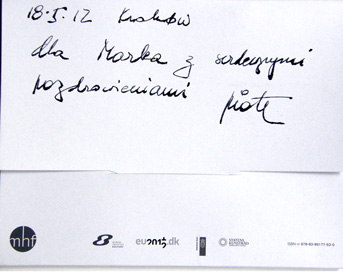 18.I.12 Kraków
dla Marka z serdecznymi
pozdrowieniami Piotr
mhf
eu2012.dk